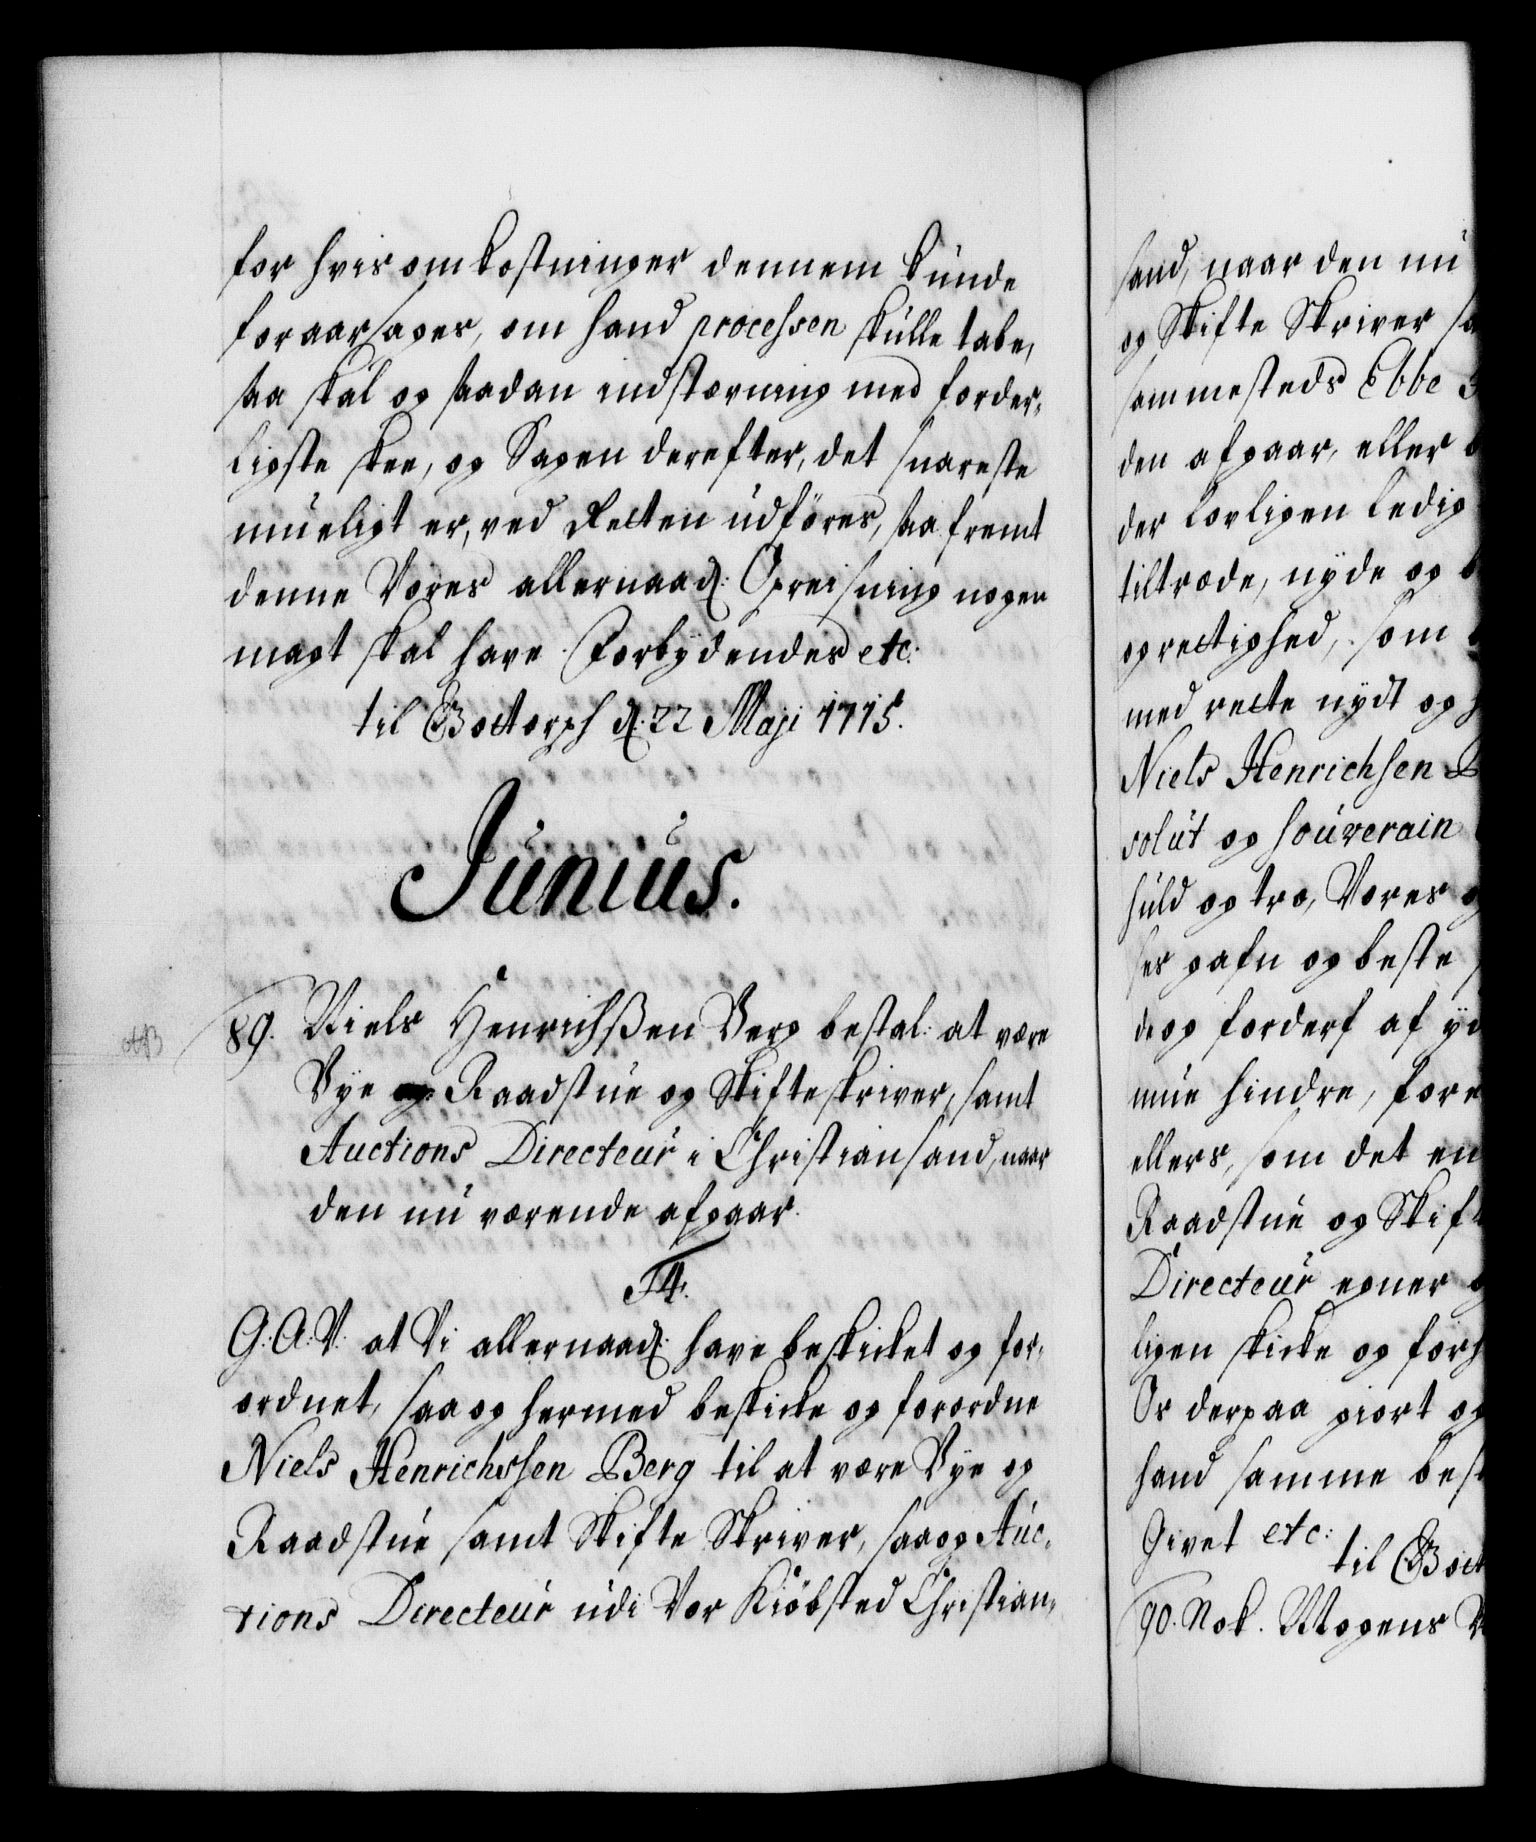 for hvis omkostninger dennem kunde
foraarsages, om hand processen skulle tabe,
saa skal og saadan indstævning med forder-
ligste skee, og Sagen derefter, det snareste
mueligt er, ved Retten udføres, saa fremt
denne Vores allernaad: Opreisning nogen
magt skal have. Forbydendes etc:
til Gottorph d: 22 Maji 1715.
Junius.
89. Niels Henrichßen Berg bestal: at være
Bye Raadstue og Skifteskriver, samt
Auctions Directeur i Christiansand, naar
den nu værende afgaar.
F4.
G: A: V: at Vi allernaad: have beskicket og for-
ordnet, saa og hermed beskicke og forordne
Niels Henrichssen Berg til at være Bye og
Raadstue samt Skifte Skriver, saa og Auc-
tions Directeur udi Vor Kiöbsted Christian-
sand, naar den nu
og Skifte Skriver
sammesteds Ebbe
den afgaar, eller
der lovligen ledig
tiltræde, nyde og
oprettighed, som
med rette nydt og
Niels Henrichsen
solut og souverain
huld og tro, Vores
ses gafn og beste
de og forderf af
mue hindre, fore
ellers, som det
Raadstue og Skif
Directeur egner
ligen skicke og forh
Or derpaa giort og
hand samme best
Givet etc:
til Gott
90. Nok. Mogens